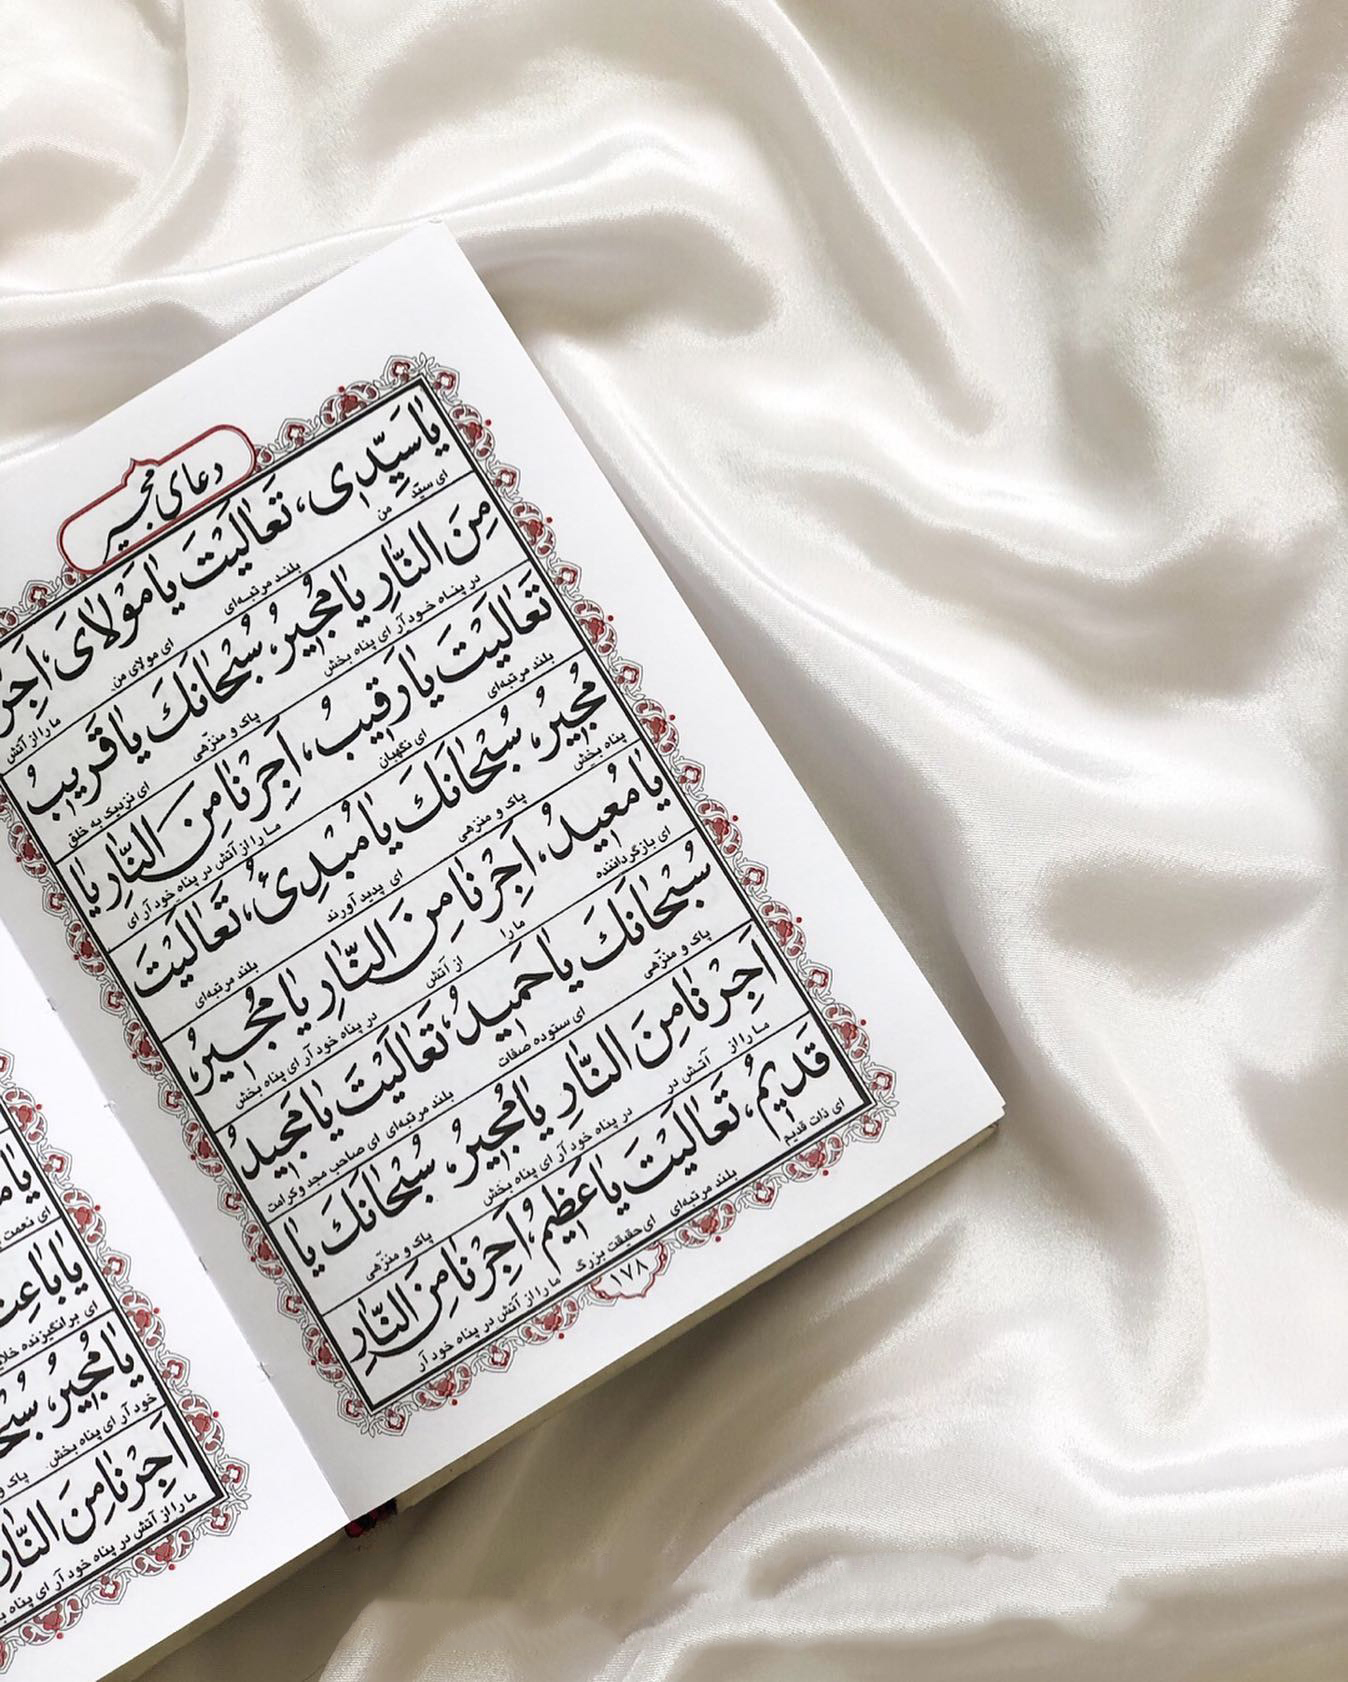 دعای مجیر
یٰا سَیِّدی، تَعٰالَیْتَ یٰا مَوْلاٰیَ، اَجِرْ
ای سیّد من بلند مرتبه‌ای ای مولای من ما را از آتش
مِنَ النّٰارِ یٰا مُجیرُ، سُبْحٰانَكَ یٰا قَریبُ
در پناه خود آر ای پناه بخش پاک و منزّهی ای نزدیک به خلق
تَعٰالَیْتَ یٰا رَقیبُ، اَجِرْنٰا مِنَ النّٰارِ یٰا
بلند مرتبه‌ای ای نگهبان ما را از آتش در پناه خود آر ای
مُجیرُ، سُبْحٰانَكَ یٰا مُبْدِئُ، تَعٰالَیْتَ
پناه بخش پاک و منزهی ای پدید آورند بلند مرتبه‌ای
یٰا مُعیدُ، اَجِرْنٰا مِنَ النّٰارِ یٰا مُجیرُ،
ای بازگرداننده ما را از آتش در پناه خود آر ای پناه بخش
سُبْحٰانَكَ یٰا حَمیدُ، تَعٰالَیْتَ یٰا مَجیدُ
پاک و منزّهی ای ستوده صفات بلند مرتبه‌ای ای صاحب مجد و کرامت
اَجِرْنٰا مِنَ النّٰارِ یٰا مُجیرُ، سُبْحٰانَكَ یٰا
ما را از آتش در در پناه خود آر ای پناه بخش پاک و منزّهی
قَدیمُ، تَعٰالَیْتَ یٰا عَظیمُ، اَجِرْنٰا مِنَ النّٰارِ
ای ذات قدیم بلند مرتبه‌ای ای حقیقت بزرگ ما را از آتش در پناه خود آر
١٧٨
ای نعمت
یٰا بٰاعِثُ
ای برانگیزنده
یٰا مُجیرُ،
خود آر ای پناه بخش پاک و
اَجِرْنٰا مِنَ النّٰارِ
ما را از آتش در پناه خود آر ای پناه